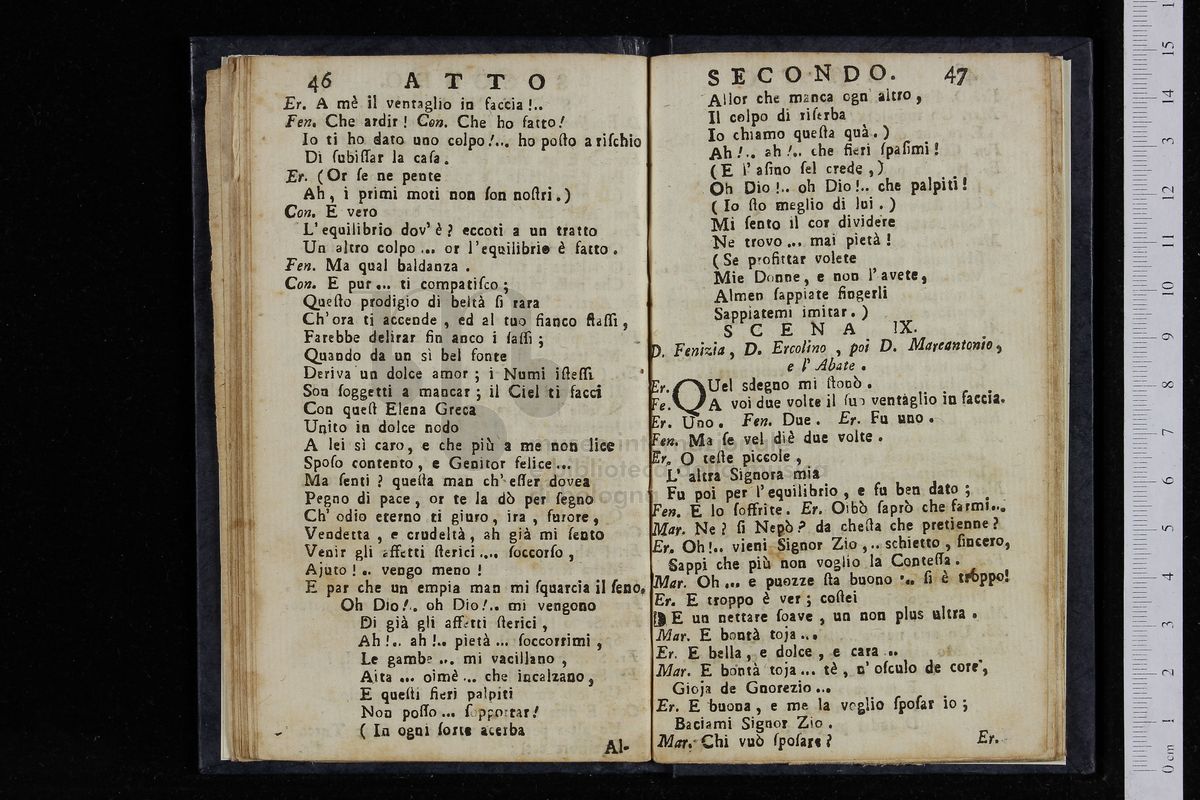 46 ATTO
Er. A mè il ventaglio in faccia!..
Fen. Che ardir! Con. Che ho fatto!
Io ti ho dato uno colpo!... ho poſto a riſchio
Di ſubiſſar la caſa.
Er. (Or ſe ne pente
Ah, i primi moti non ſon noſtri.)
Con. E vero
L'equilibrio dov'è? eccoti a un tratto
Un altro colpo ... or l'equilibrio è fatto.
Fen. Ma qual baldanza.
Con. E pur... ti compatiſco;
Queſto prodigio di beltà ſi rara
Ch'ora ti accende, ed al tuo fianco ſtaſſi,
Farebbe delirar fin anco i ſaſſi;
Quando da un sì bel fonte
Deriva un dolce amor; i Numi iſteſſi
Son ſoggetti a mancar; il Ciel ti facci
Con queſt Elena Greca
Unito in dolce nodo
A lei sì caro, e che più a me non lice
Spoſo contento, e Genitor felice...
Ma ſenti? queſta man ch'eſſer dovea
Pegno di pace, or te la dò per ſegno
Ch'odio eterno ti giuro, ira, furore,
Vendetta, e crudeltà, ah già mi ſento
Venir gli affetti ſterici.... ſoccorſo,
Ajuto!.. vengo meno!
E par che un empia man mi ſquarcia il ſeno.
Oh Dio!.. oh Dio!.. mi vengono
Di già gli affetti ſterici,
Ah!.. ah!.. pietà... ſoccorrimi,
Le gambe ... mi vacillano,
Aita ... oimè ... che incalzano,
E queſti fieri palpiti
Non poſſo... ſopportar!
(In ogni ſorte acerba
Al-
SECONDO. 47
Allor che manca ogn altro,
Il colpo di riſerba
Io chiamo queſta quà.)
Ah!.. ah!.. che fieri ſpaſimi!
(E l'aſino ſel crede,)
Oh Dio!.. oh Dio!.. che palpiti!
(Io ſto meglio di lui.)
Mi ſento il cor dividere
Ne trovo... mai pietà!
(Se profittar volete
Mie Donne, e non l'avete,
Almen ſappiate fingerli
Sappiatemi imitar.)
SCENA IX.
D. Fenizia, D. Ercolino, poi D. Marcantonio,
e l'Abate.
Er. QUel sdegno mi ſtonò.
Fe. A voi due volte il ſuo ventaglio in faccia.
Er. Uno. Fen. Due. Er. Fu uno.
Fen. Ma ſe vel diè due volte.
Er. O teſte piccole,
L'altra Signora mia
Fu poi per l'equilibrio, e fu ben dato;
Fen. E lo ſoffrite. Er. Oibò ſaprò che farmi...
Mar. Ne? ſi Nepò? da cheſta che pretienne?
Er. Oh!.. vieni Signor Zio,.. schietto, ſincero,
Sappi che più non voglio la Conteſſa.
Mar. Oh... e puozze ſta buono '.. ſi è troppo!
Er. E troppo è ver; coſtei
E un nettare ſoave, un non plus ultra.
Mar. E bontà toja...
Er. E bella, e dolce, e cara...
Mar. E bontà toja... tè, n'oſculo de core,
Gioja de Gnorezio...
Er. E buona, e me la voglio ſpoſar io;
Baciami Signor Zio.
Mar. Chi vuò ſpoſare?
Er.
0 cm 1 2 3 4 5 6 7 8 9 10 11 12 3 14 15